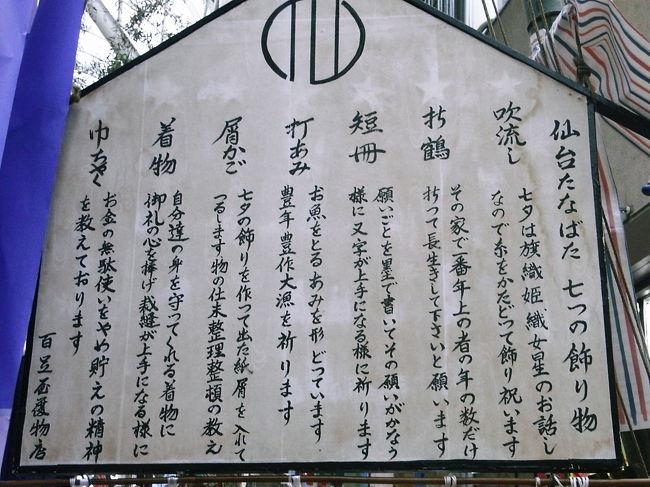 仙台たなばた 七つの飾り物
吹流し
七夕は旗織姫織女星のお話し
なので糸をかたどつて飾り祝います
折鶴
その家で一番年上の者の年の数だけ
折つて長生きして下さいと願います
短冊
願いごとを墨で書いてその願いがかなう
様に又字が上手になる様に祈ります
打あみ
お魚をとるあみを形どつています
豊年豊作大漁を祈ります
屑かご
七夕の飾りを作つて出た紙屑を入れて
つるします物の仕末整理整頓の教え
着物
自分達の身を守つてくれる着物に
御礼の心を捧げ裁縫が上手になる様に
巾ちやく
お金の無駄使いをやめ貯えの精神
を教えております